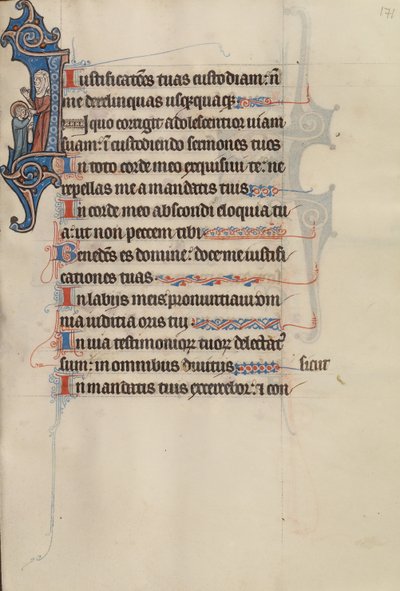 171
Iustificatões tuas custodiam: ñ
me derelinquas usq̃quaq̃.
In quo corrigit adolescentior uiam
suam: ĩ custodiendo sermones tuos
In toto corde meo exquisiui te: ne
repellas me a mandatis tuis
In corde meo abscondi eloquia tu
a: ut non peccem tibi
Benedc̃us es domine: doce me iustifi
cationes tuas
In labijs meis: pronuntiaui om
nia iudicia oris tui
In uia testimonioꝝ tuoꝝ delectat᷒
sum: in omnibus diuitijs
sicut
In mandatis tuis exercebor: ⁊ con